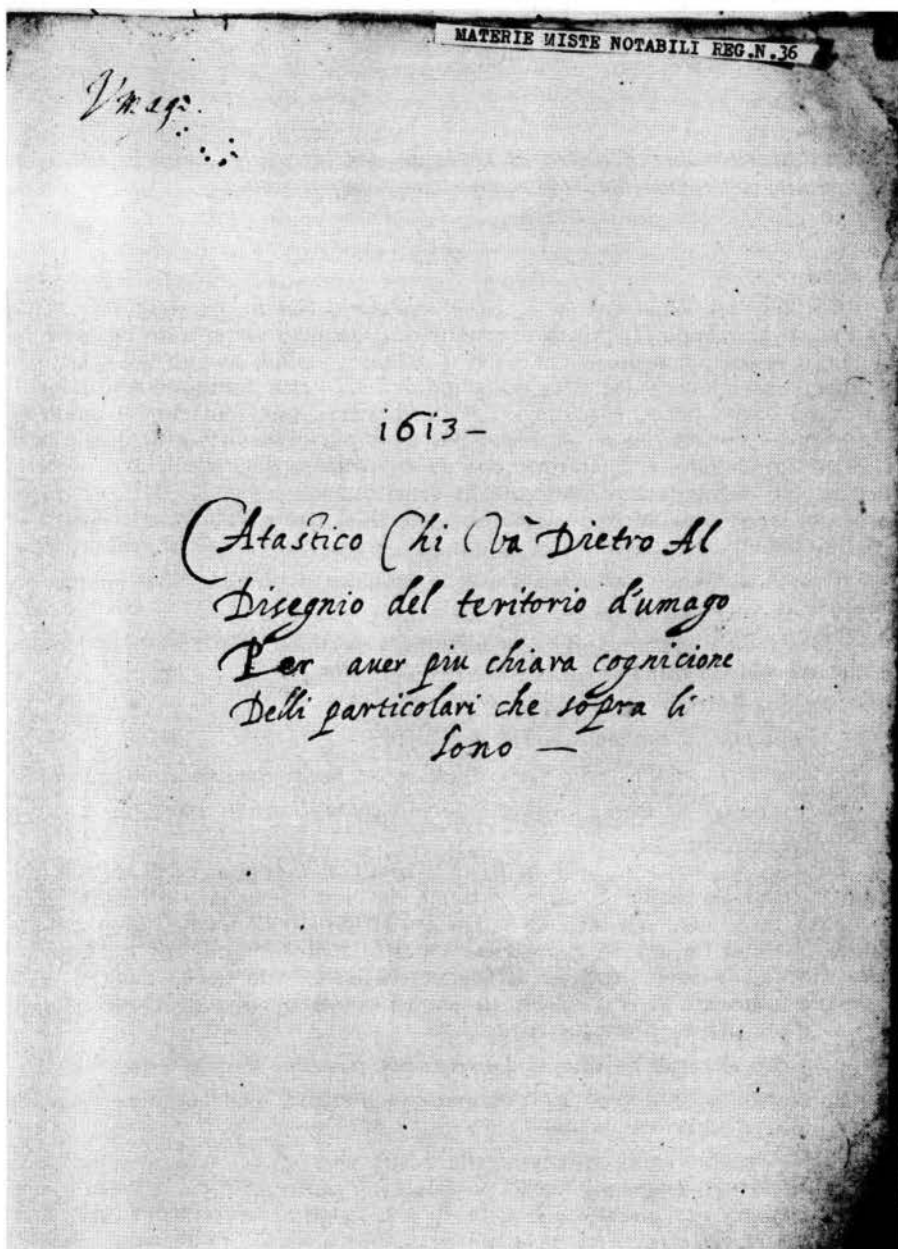 MATERIE MISTE NOTABILI REG.N.36
Vmago.
1613 –
CAtastico Chi Và Dietro Al
Disegnio del teritorio d'umago
Per auer piu chiara cognicione
Delli particolari che sopra li
sono —